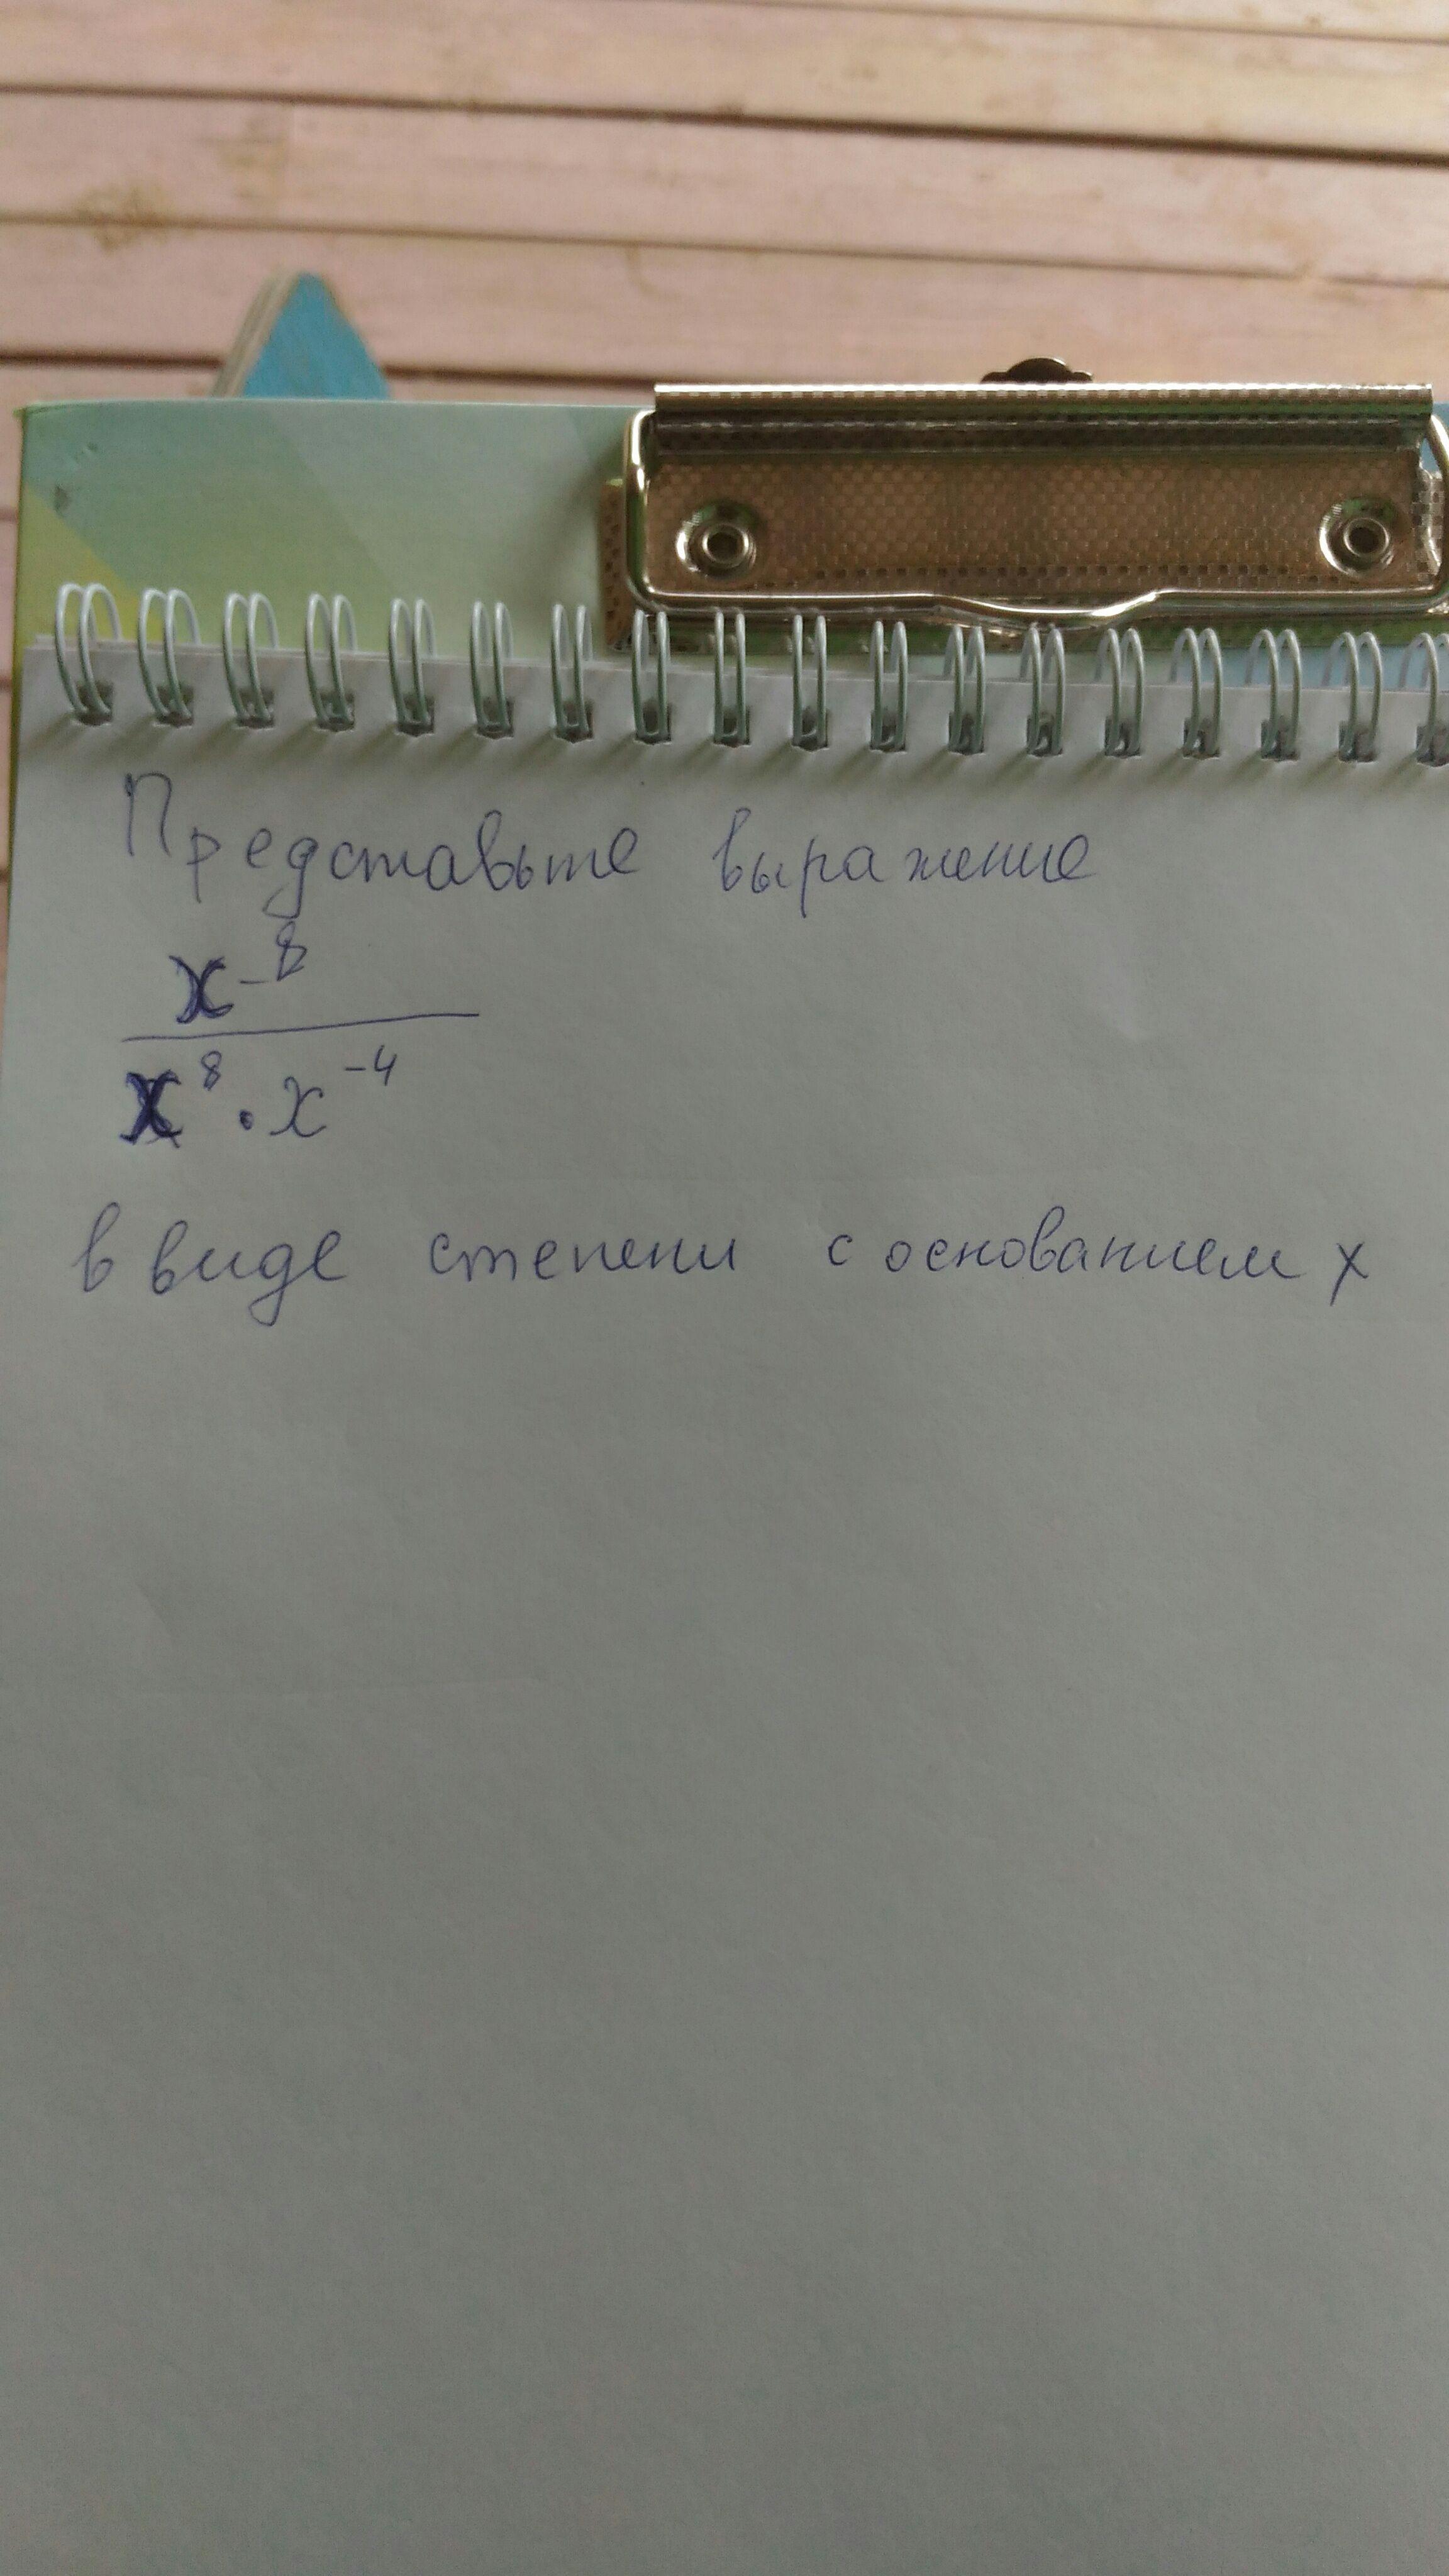 Представьте выражение
x⁻⁸
x⁸ · x⁻⁴
в виде степени с основанием x